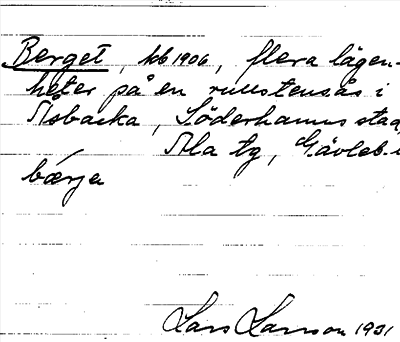 Berget, kb 1906, flera lägen-
heter på en rullstensås i
Åsbacka, Söderhamns stad,
Ala tg, Gävleb.
bærja
Lars Larsson 1931